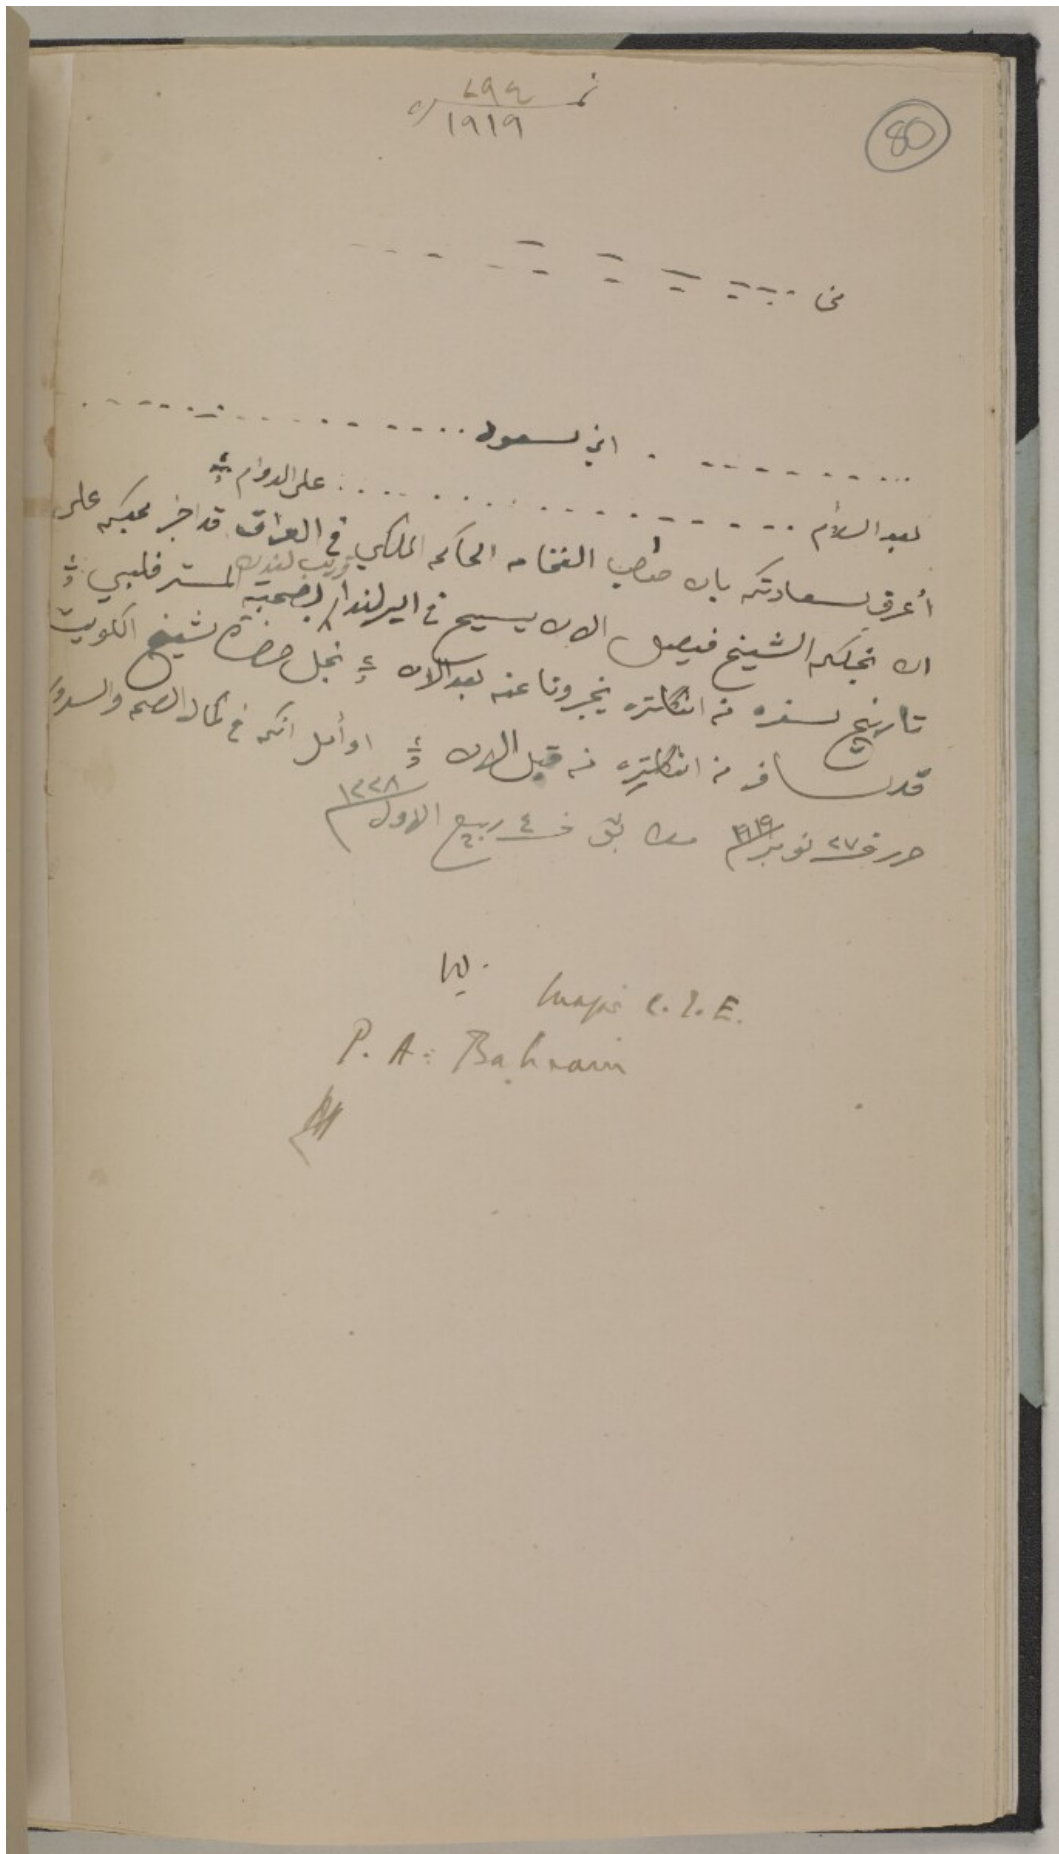 نمـ ٤٩٩
١٩١٩
80
من
ابن سعود
بعد السلام على الدوام
أعرف سعادتكم بان صاحب الفخامه الحاكم الملكي في العراق قد اخبر محبكم على
قريب لندن
ان نجلكم الشيخ فيصل الان يسيح في ايرلندا بصحبة المستر فلبي
تاريخ سفره من انكلتره يخبرونا عنه بعد الان نجل حضرة شيخ الكويت
قد سافر من انكلتره من قبل الان و أأمل انكم في كمال الصحه والسرور
حرر في ٢٧ نوبر ١٩١٩ مطابق في ٤ ربيع الاول ١٣٣٨
Major C.I.E.
P. A: Bahrain